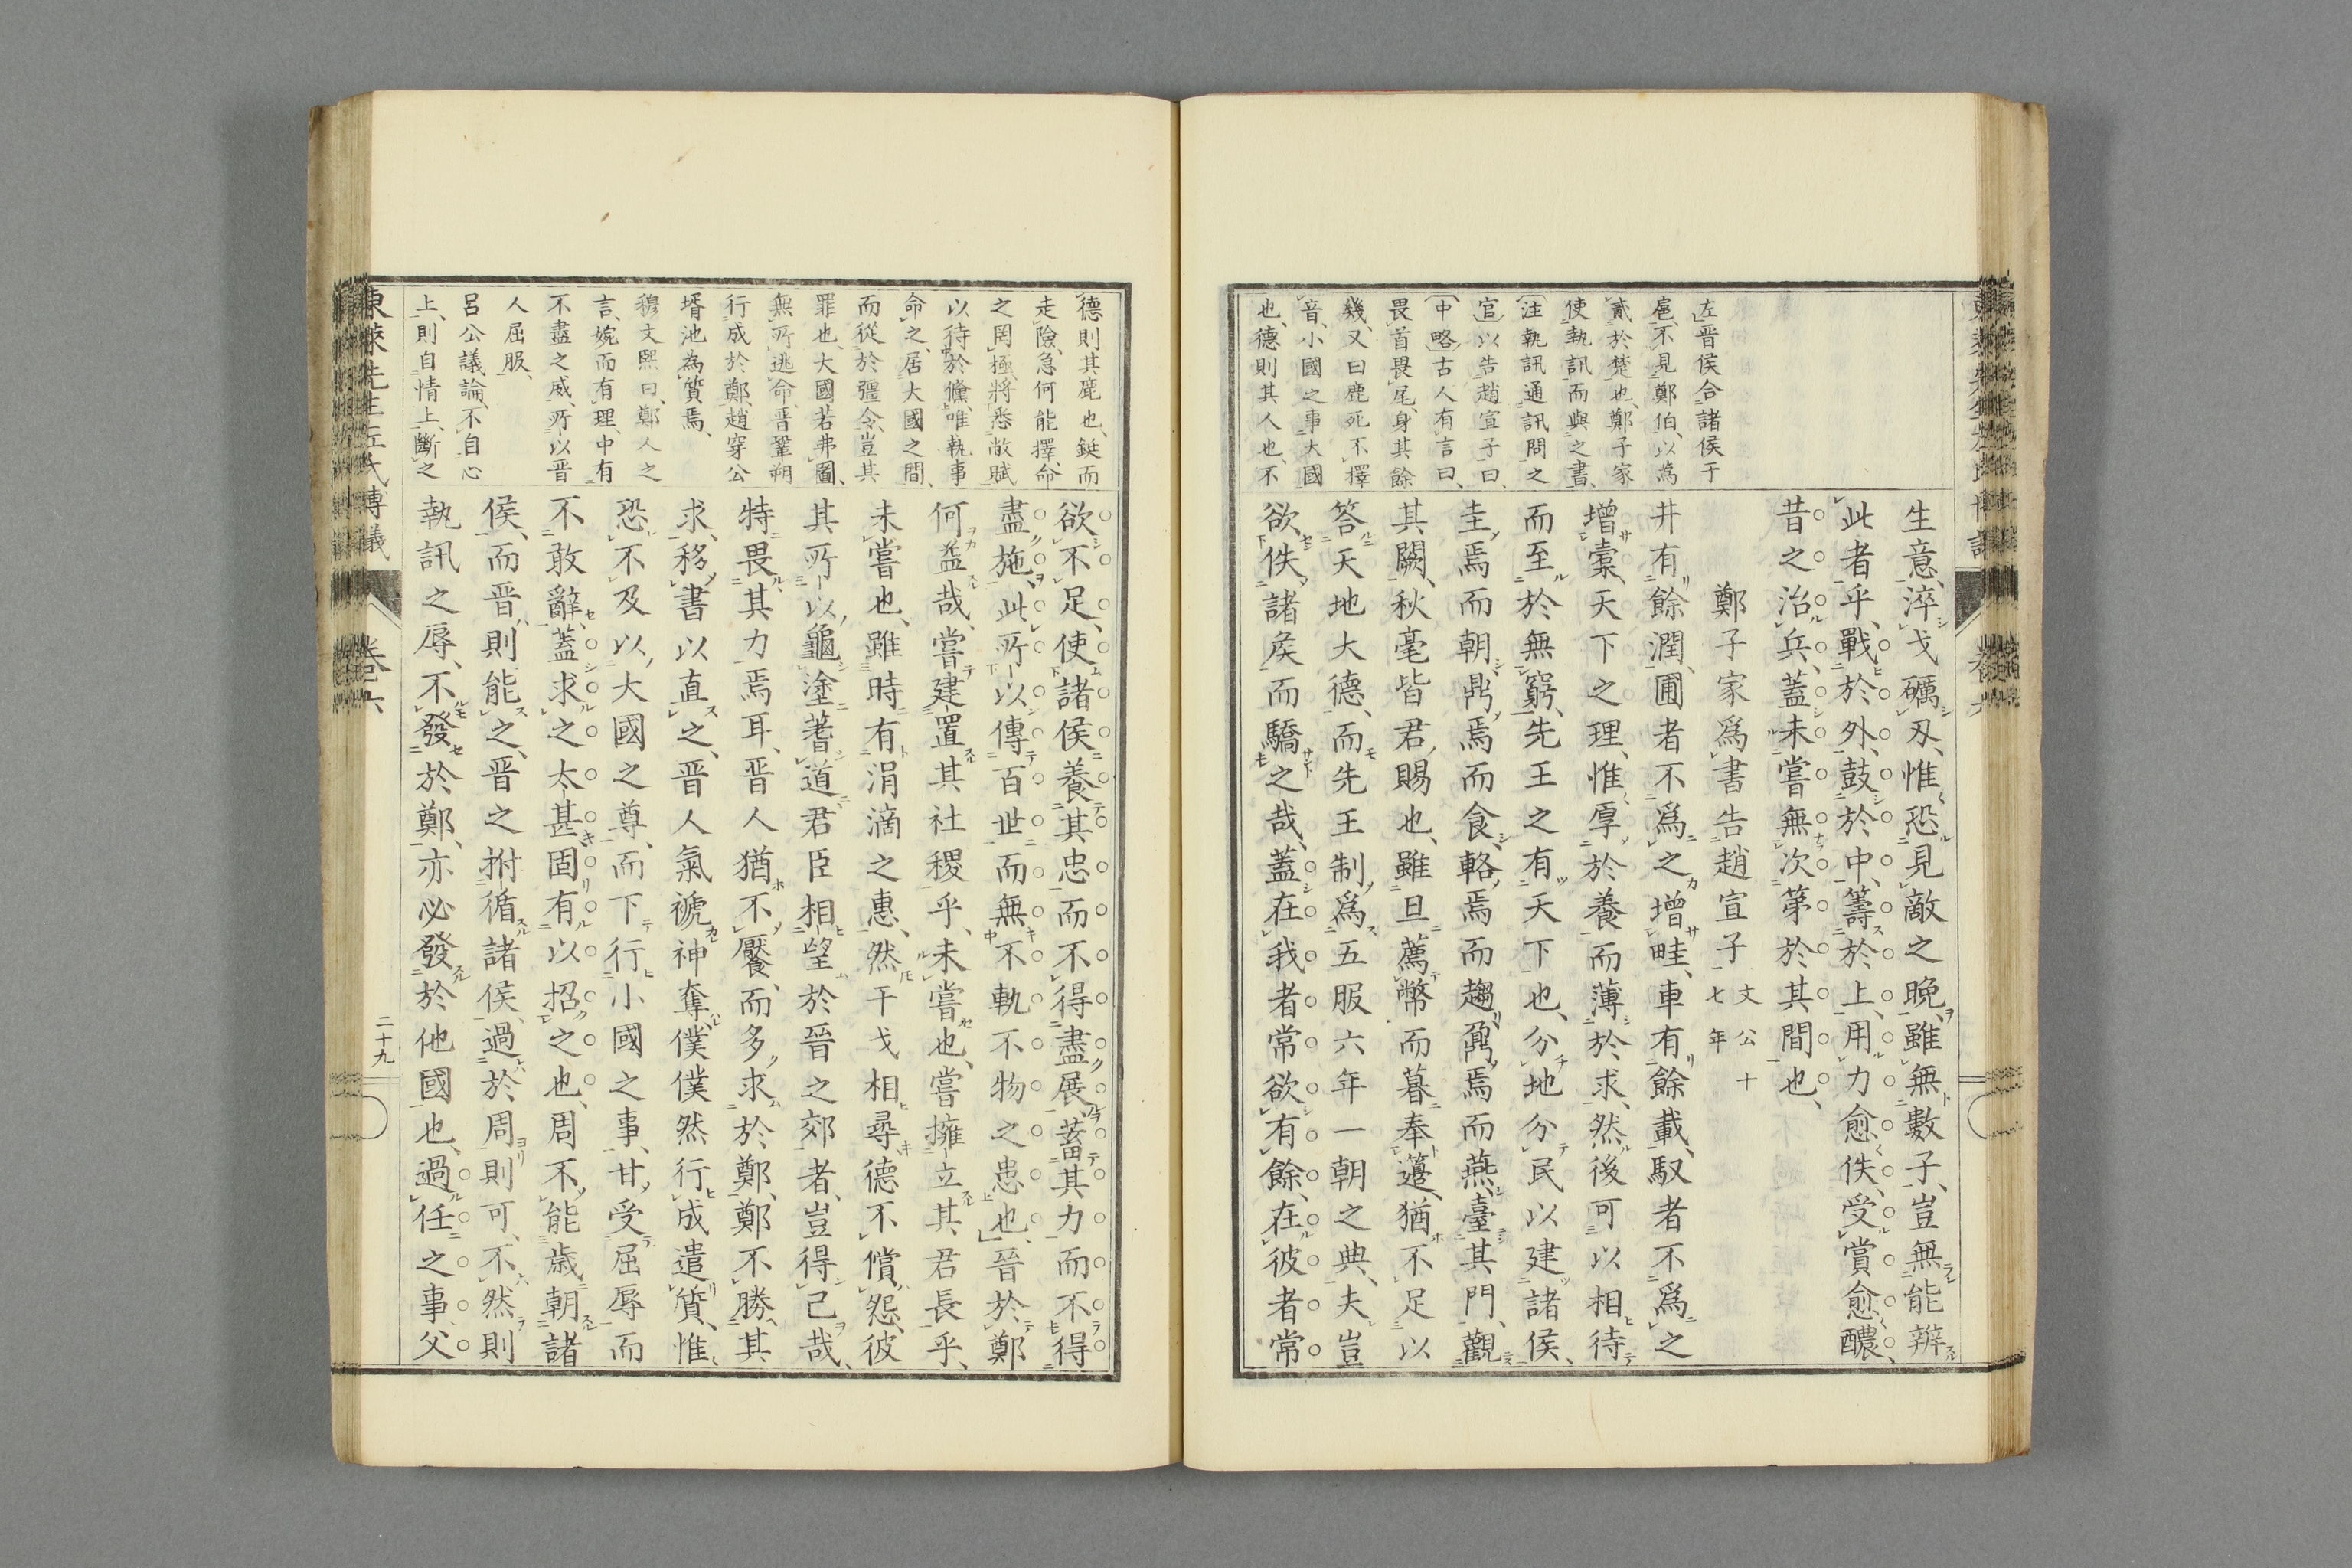 生意、淬戈礪刄、惟恐見敵之晩、雖無數子、豈無能辨
此者乎、戰於外、鼓於中、籌於上、用力愈佚、受賞愈醲、
昔之治兵、蓋未嘗無次第於其間也、
鄭子家爲書告趙宣子 文公十七年
井有餘潤、圃者不爲之增畦、車有餘載、馭者不爲之
增槖、天下之理、惟厚於養而薄於求、然後可以相待
而至於無窮、先王之有天下也、分地分民以建諸侯、
圭焉而朝、鼎焉而食、輅焉而趨、鼐焉而燕、臺其門、觀
其闕、秋毫皆君賜也、雖旦薦幣而暮奉籩、猶不足以
答天地大德、而先王制爲五服六年一朝之典、夫豈
欲佚諸矦而驕之哉、蓋在我者常欲有餘、在彼者常
左晋侯合諸侯于
扈、不見鄭伯、以為
貳於楚也、鄭子家
使執訊而與之書、
注執訊通訊問之
官以告趙宣子曰、
中略古人有言曰、
畏首畏尾、身其餘
幾、又曰鹿死不擇
音、小國之事大國
也、德則其人也、不
德則其鹿也、鋌而
走險、急何能擇、命
之罔極、將悉敝賦
以待於鯈、唯執事
命之、居大國之間、
而從於彊令、豈其
罪也、大國若弗圖、
無所逃命、晋鞏朔
行成於鄭、趙穿公
壻池為質焉、
穆文熙曰、鄭人之
言、婉而有理、中有
不盡之威、所以晋
人屈服、
呂公議論、不自心
上、則自情上、斷之
欲不足、使諸侯養其忠而不得盡展、蓄其力而不得
盡施、此所以傳百世而無不軌不物之患也、晉於鄭
何益哉、嘗建置其社稷乎、未嘗也、嘗擁立其君長乎、
未嘗也、雖時有涓滴之惠、然干戈相尋、德不償怨、彼
其所以龜塗蓍道君臣相望於晉之郊者、豈得已哉、
特畏其力焉耳、晋人猶不饜、而多求於鄭、鄭不勝其
求、移書以直之、晋人氣褫神奪、僕僕然行成遣質、惟
恐不及以大國之尊、而下行小國之事、甘受屈辱而
不敢辭、蓋求之太甚、固有以招之也、周不能歲朝諸
侯、而晋則能之、晋之拊循諸侯、過於周則可、不然則
執訊之辱、不發於鄭、亦必發於他國也、過任之事、父
東萊先生左氏博議
卷六
二十九